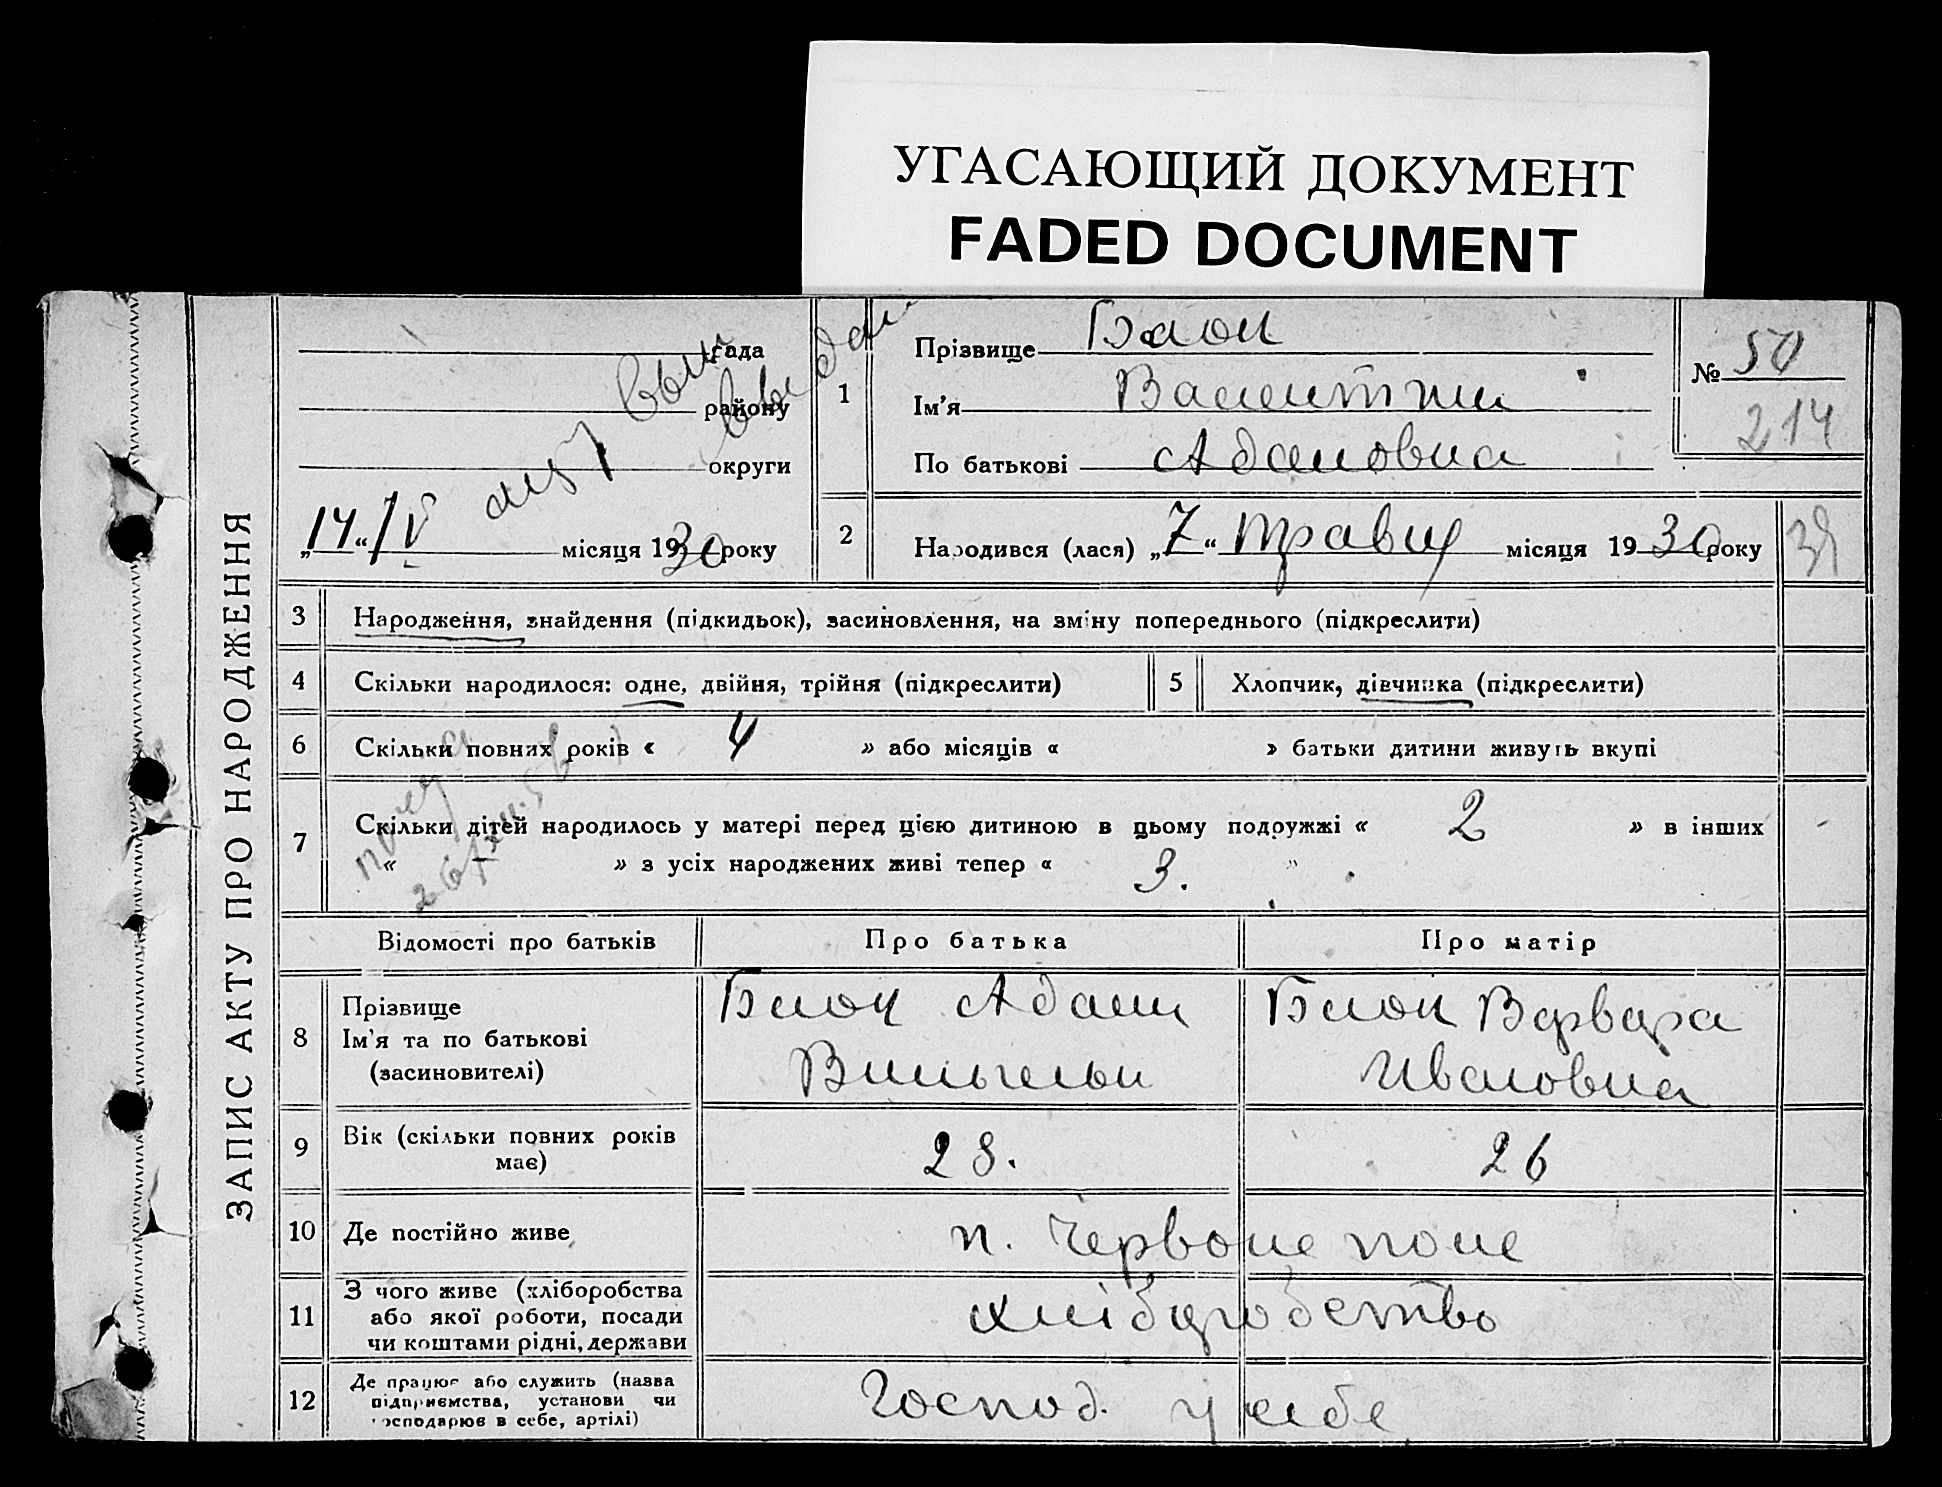 УГАСАЮЩИЙ ДОКУМЕНТ
FADED DOCUMENT
ЗАПИС АКТУ ПРО НАРОДЖЕННЯ
рада
району
округи
„14“ IV місяця 1930 року
1
Прізвище Блок
Ім'я Валентина
По батькові Адамовна
№ 50
214
2
Народився (лася) „7“ травня місяця 1930 року
3 Народження, знайдення (підкидьок), засиновлення, на зміну попереднього (підкреслити)
4 Скільки народилося: одне, двійня, трійня (підкреслити)
5 Хлопчик, дівчинка (підкреслити)
6 Скільки повних років « 4 » або місяців « » батьки дитини живуть вкупі
7 Скільки дітей народилось у матері перед цією дитиною в цьому подружжі « 2 » в інших
« » з усіх народжених живі тепер « 3. »
Відомості про батьків
Про батька
Про матір
8 Прізвище
Ім'я та по батькові
(засиновителі)
Блок Адам
Вильгельм
Блок Варвара
Ивановна
9 Вік (скільки повних років
має)
28.
26
10 Де постійно живе
п. Червоне поле
11 З чого живе (хліборобства
або якої роботи, посади
чи коштами рідні, держави
хліборобство
12 Де працює або служить (назва
підприємства, установи чи
господарює в себе, артілі)
Господ. у себе